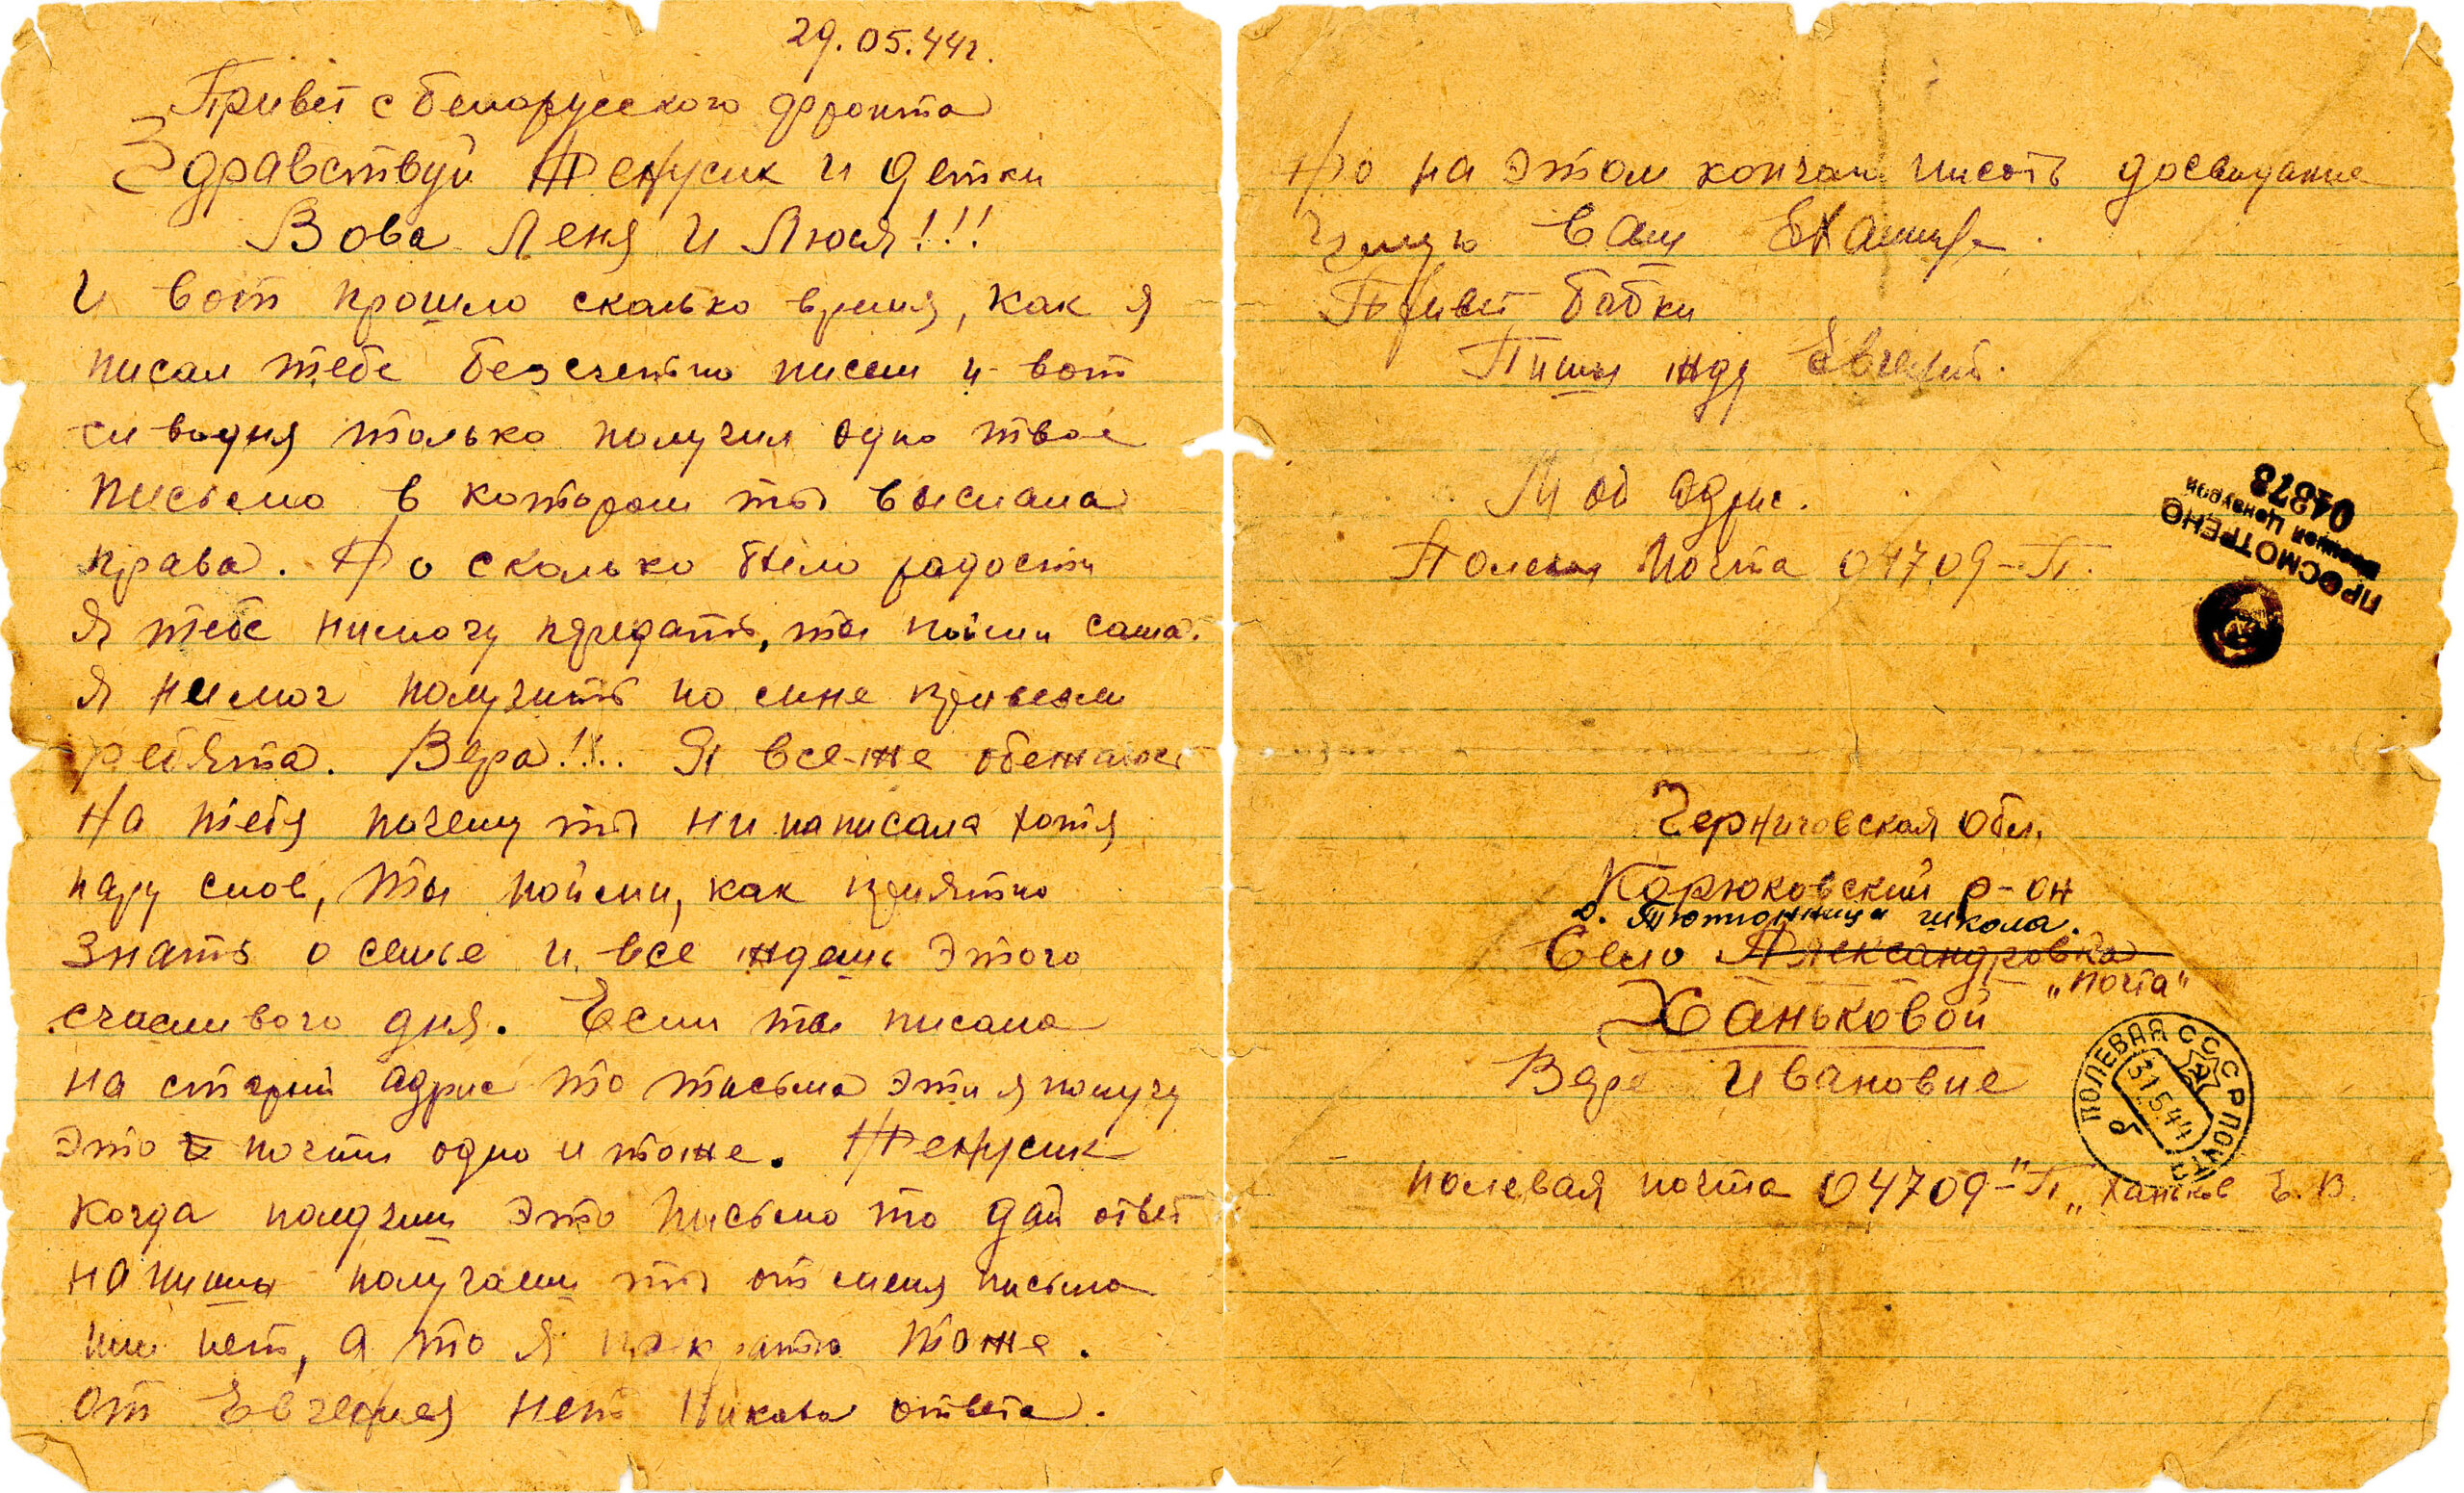 29.05.44г.
Привет с белорусского фронта
Здравствуй Женусик и детки
Вова Леня и Люся!!!
И вот прошло сколько время, как я
писал тебе безсчетно писем и вот
сиводня только получил одно твое
письмо в котором ты выслала
права. Но сколько было радости
Я тебе нимогу передать, ты пойми сама.
Я нимог получить но мне привезли
ребята. Вера!!.. Я все-же обежаюсь
На тебя почему ты ни написала хотя
пару слов, ты пойми, как приятно
знать о семье и все ждешь этого
счасливого дня. Если ты писала
на старый адрис то письма эти я получу
это почти одно и тоже. Женусик
когда получиш это письмо то дай ответ
напишы получаеш ты от меня письма
или нет, а то я прекратю тоже.
от Евгения нет Никова ответа.
Но на этом кончаю писать досвидание
Целую Ваш
Привет бабки
Пишы жду Евгений.
Мой адрис.
Полевая Почта 04709-П.
ПРОСМОТРЕНО
Военной Цензурой
04378
Черниговская обл.
Корюковский р-он
д. Тютюнница школа.
Село Александровка
"почта"
Ханьковой
Вере Ивановне
ПОЛЕВАЯ ПОЧТА СССР
31.5.44
б
полевая почта 04709-"П" Ханьков Е.В.